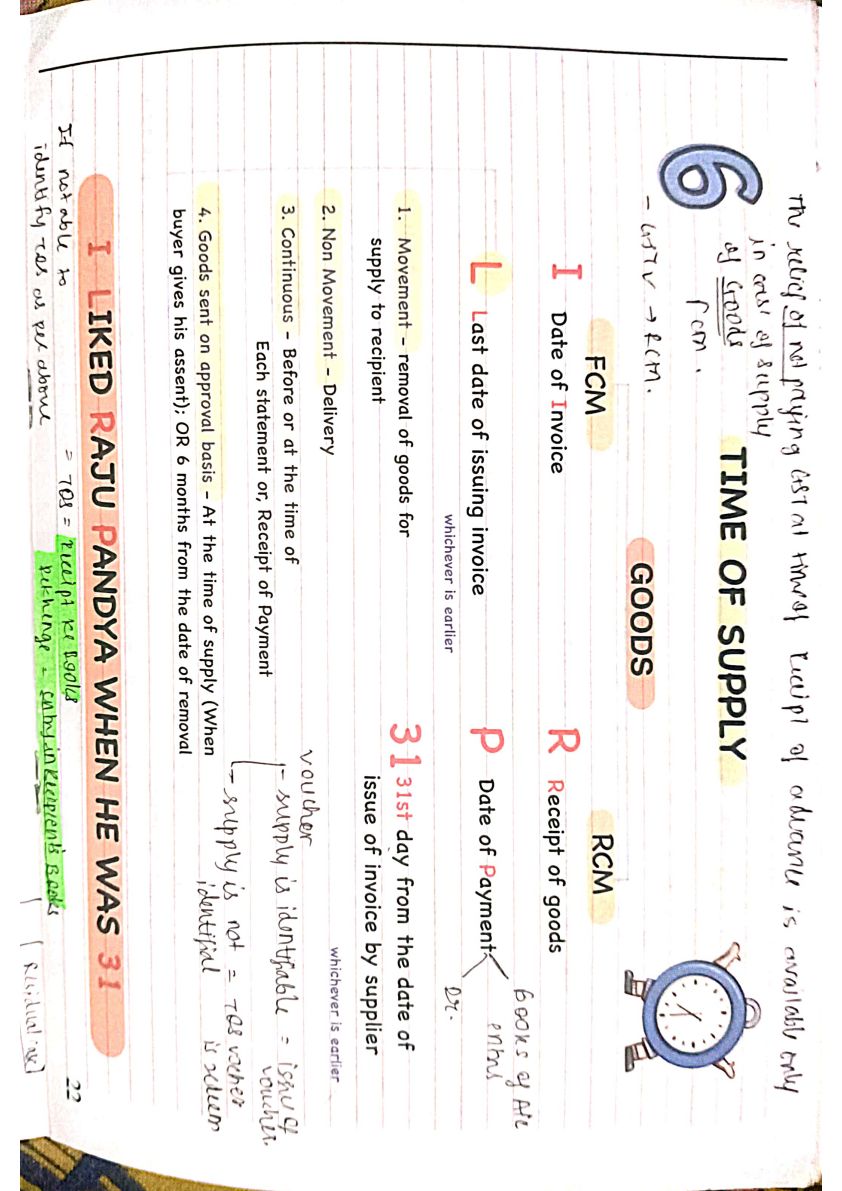 The relief of not paying GST at time of receipt of advance is available only
in case of supply
of Goods
6
TIME OF SUPPLY
fcm.
- GSTV → RCM.
GOODS
FCM
I Date of Invoice
L Last date of issuing invoice
whichever is earlier
1. Movement - removal of goods for
supply to recipient
2. Non Movement - Delivery
3. Continuous - Before or at the time of
Each statement or, Receipt of Payment
4. Goods sent on approval basis - At the time of supply (When
buyer gives his assent); OR 6 months from the date of removal
RCM
R Receipt of goods
P Date of Payment
Books of A/c
entry
Dr.
31 31st day from the date of
issue of invoice by supplier
whichever is earlier
voucher
- supply is identifiable = issue of
voucher
- supply is not = TOS vocher
identifial is redeem
I LIKED RAJU PANDYA WHEN HE WAS 31
If not able to = TOS = receipt Re Books
identify TOS as per above
= entry in Recipient's Books
22